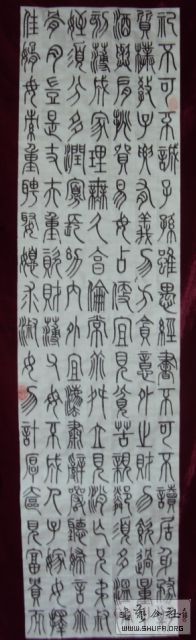 祀不可不誠子孫雖愚經書不可不讀居身務期
質樸教子要有義方勿貪意外之財勿飲過量之
酒與肩挑貿易毋占便宜見貧苦親鄰須多溫恤
刻薄成家理無久享倫常乖舛立見消亡兄弟叔
侄須分多潤寡長幼內外宜法肅辭嚴聽婦言乖
骨肉豈是丈夫重資財薄父母不成人子嫁女擇
佳婿毋索重聘娶媳求淑女勿計厚奩見富貴而
WWW.SHUFA.ORG